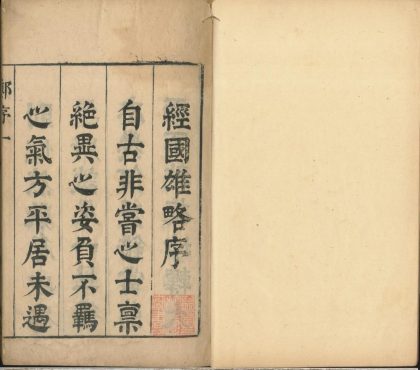 經國雄略序
自古非嘗之士禀
絶異之姿負不羈
之氣方平居未遇
鄭序一